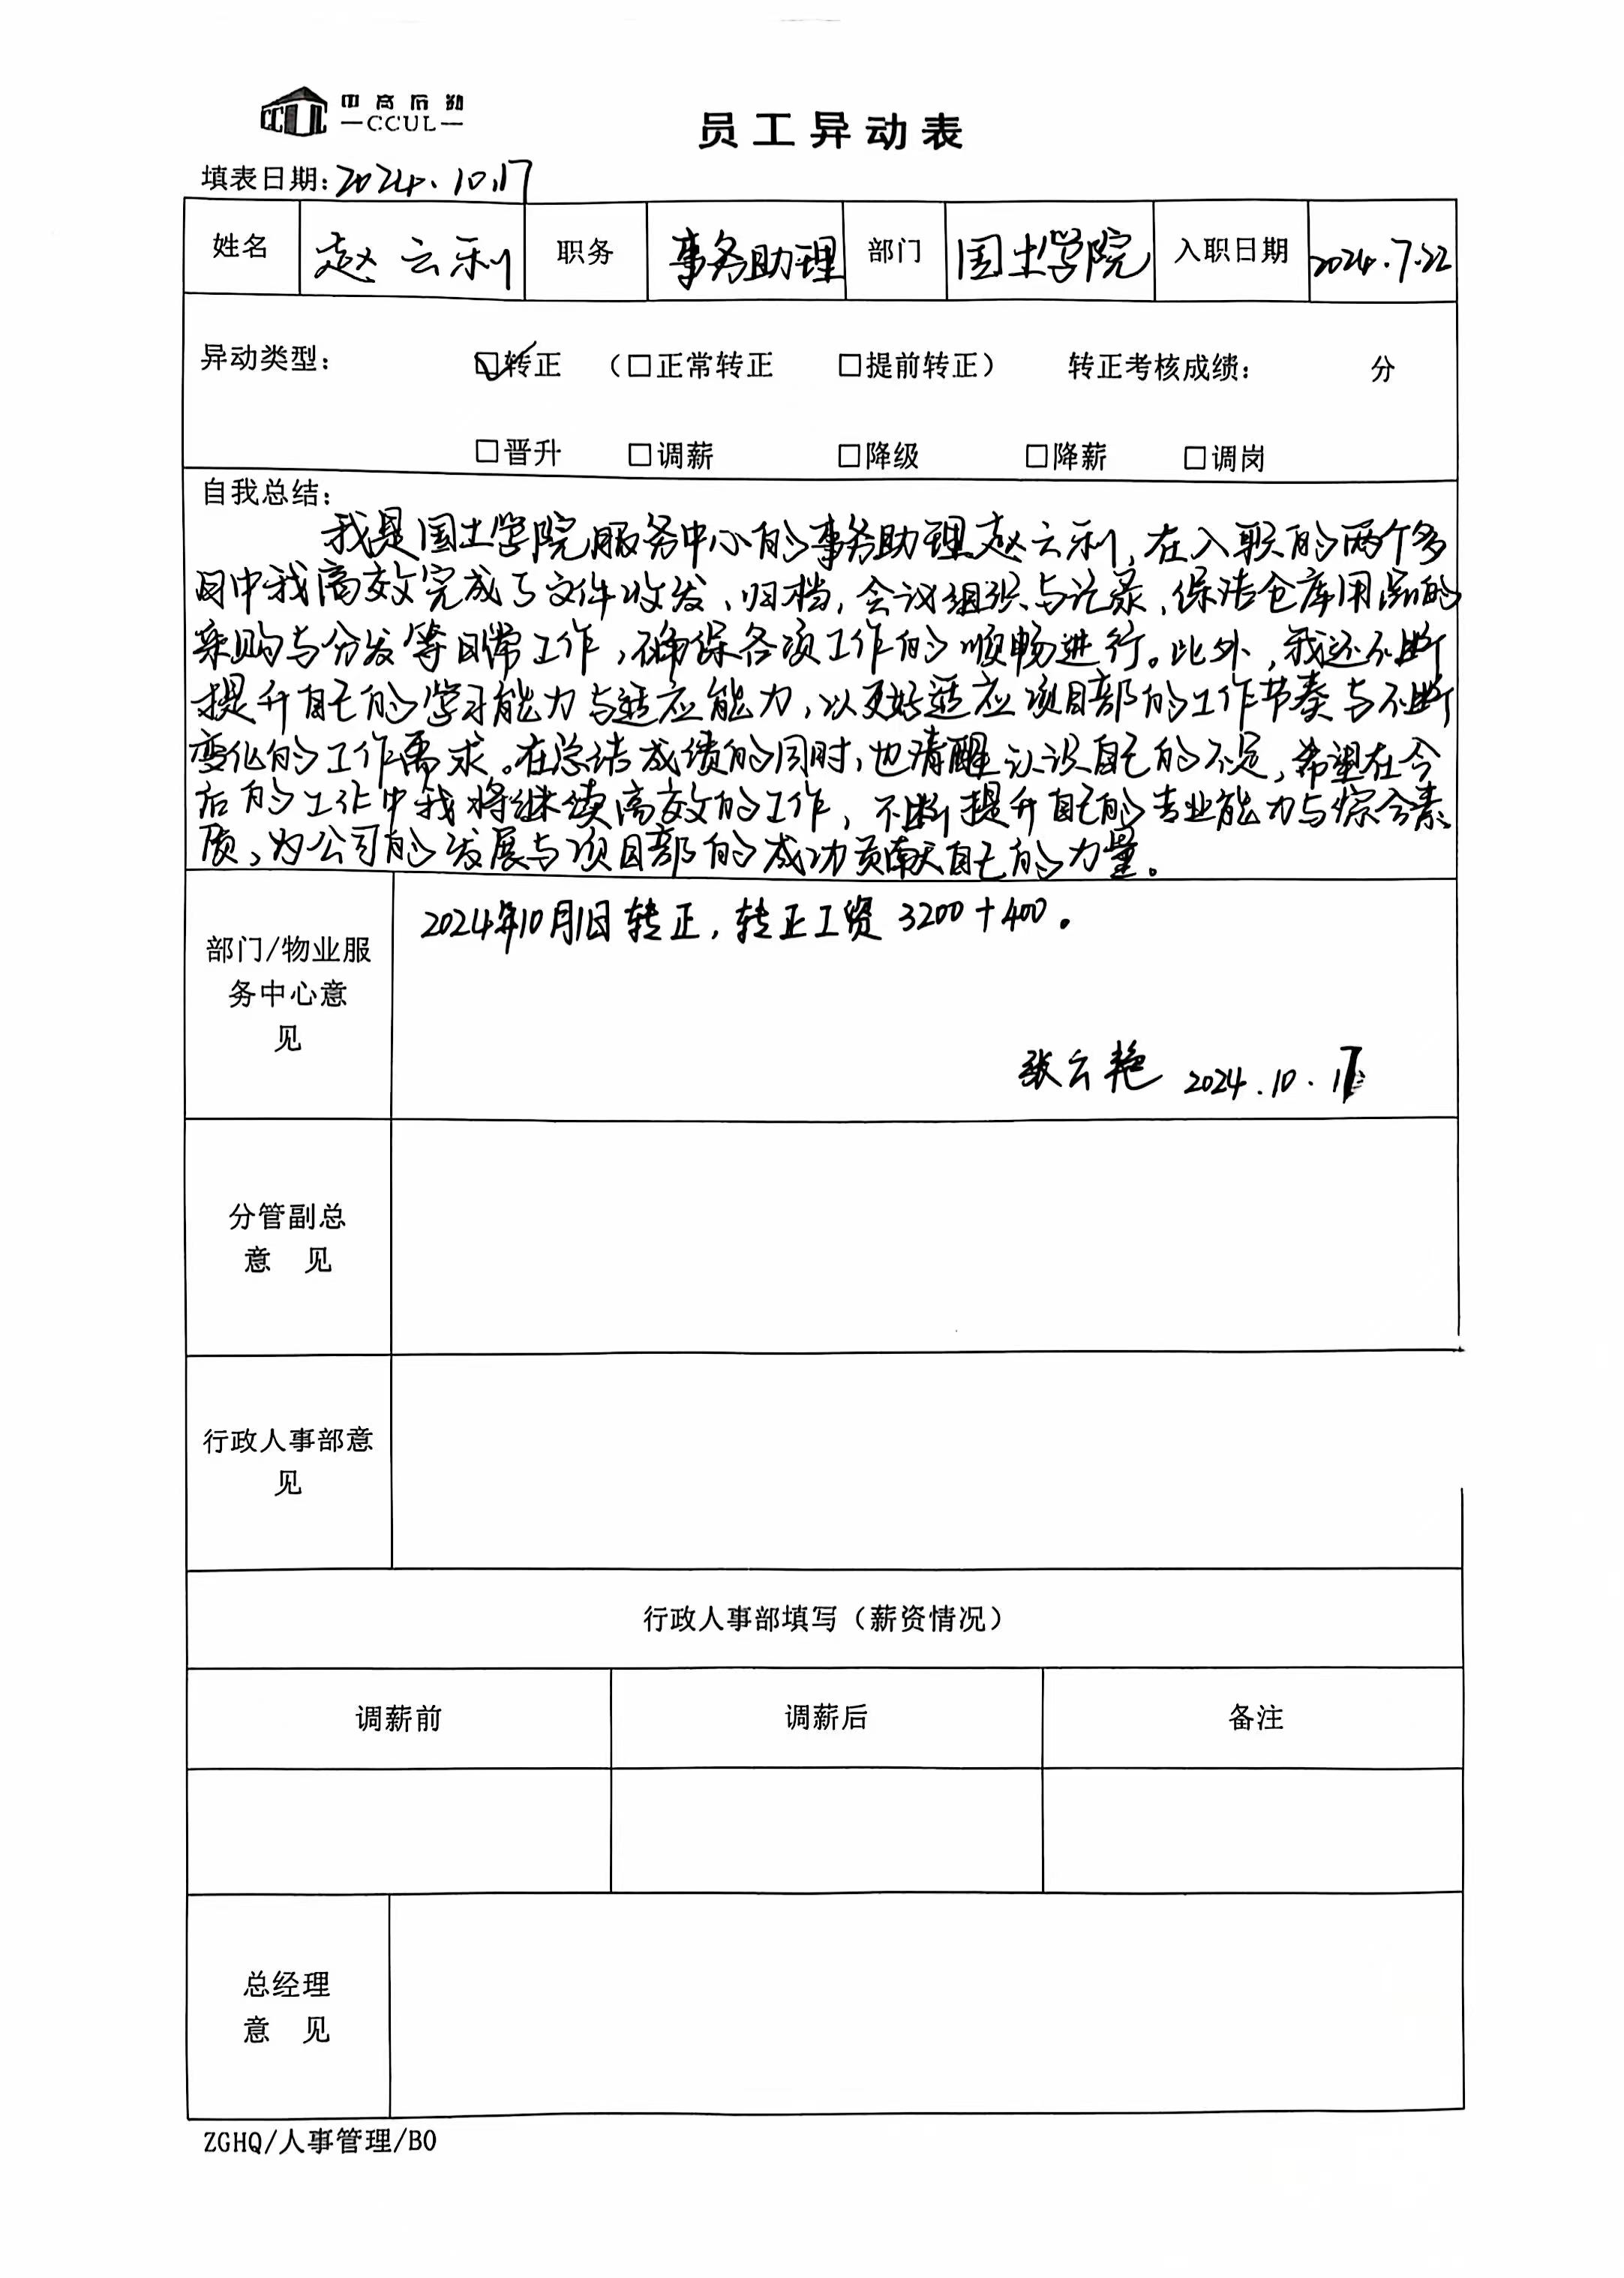 中高后勤
CCUL
—CCUL—
员工异动表
填表日期：2024.10.17
姓名 赵云利 职务 事务助理 部门 国土学院 入职日期 2024.7.22
异动类型： ☑转正 （□正常转正 □提前转正） 转正考核成绩： 分
□晋升 □调薪 □降级 □降薪 □调岗
自我总结：
我是国土学院服务中心的事务助理赵云利，在入职的两个多
月中我高效完成了文件收发、归档，会议组织与记录，保洁仓库用品的
采购与分发等日常工作，确保各项工作的顺畅进行。此外，我还不断
提升自己的学习能力与适应能力，以更好适应项目部的工作节奏与不断
变化的工作需求。在总结成绩的同时，也清醒认识自己的不足，希望在今
后的工作中我将继续高效的工作，不断提升自己的专业能力与综合素
质，为公司的发展与项目部的成功贡献自己的力量。
部门/物业服
务中心意
见
2024年10月1日转正，转正工资3200+400。
张云艳 2024.10.17
分管副总
意 见
行政人事部意
见
行政人事部填写（薪资情况）
调薪前 调薪后 备注
总经理
意 见
ZGHQ/人事管理/B0